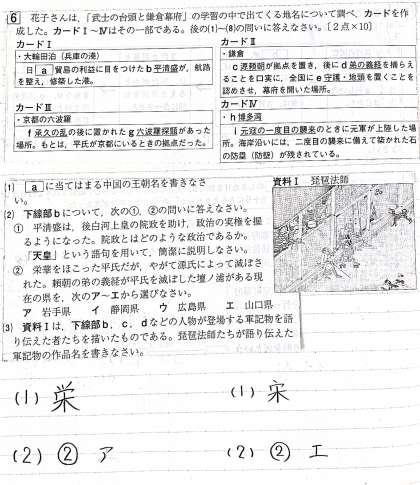 6 花子さんは,「武士の台頭と鎌倉幕府」の学習の中で出てくる地名について調べ,カードを作
成した。カードⅠ～Ⅳはその一部である。後の(1)～(8)の問いに答えなさい。〔2点×10〕
カードⅠ
・大輪田泊(兵庫の湊)
日 a 貿易の利益に目をつけたb平清盛が,航路
を整え,修築した港。
カードⅡ
・鎌倉
c源頼朝が拠点を置き,後にd弟の義経を捕らえ
ることを口実に,全国にe守護・地頭を置くことを
認めさせ,幕府を開いた場所。
カードⅢ
・京都の六波羅
f承久の乱の後に置かれたg六波羅探題があった
場所。もとは,平氏が京都にいるときの拠点だった。
カードⅣ
・h博多湾
i元寇の一度目の襲来のときに元軍が上陸した場
所。海岸沿いには,二度目の襲来に備えて築かれた石
の防塁(防壁)が残されている。
(1) a に当てはまる中国の王朝名を書きなさ
い。
(2) 下線部bについて,次の①,②の問いに答えなさい。
① 平清盛は,後白河上皇の院政を助け,政治の実権を握
るようになった。院政とはどのような政治であるか。
「天皇」という語句を用いて,簡潔に説明しなさい。
② 栄華をほこった平氏だが,やがて源氏によって滅ぼさ
れた。頼朝の弟の義経が平氏を滅ぼした壇ノ浦がある現
在の県を,次のア～エから選びなさい。
ア 岩手県 イ 静岡県 ウ 広島県 エ 山口県
3) 資料Ⅰは,下線部b,c,dなどの人物が登場する軍記物を語
り伝えた者たちを描いたものである。琵琶法師たちが語り伝えた
軍記物の作品名を書きなさい。
資料Ⅰ 琵琶法師
(1) 栄
(1) 宋
(2) ② ア
(2) ② エ